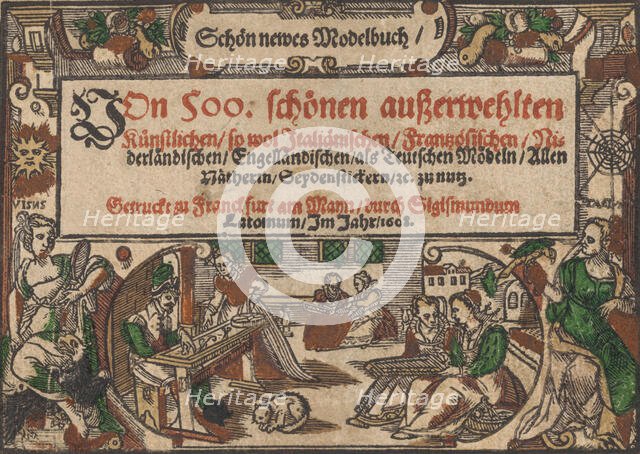 Schön newes Modelbuch/
VOn 500. schönen außerwehlten
Künstlichen/ so wol Italiänischen/ Frantzösischen/ Ni-
derländischen/ Engelländischen/ als Teutschen Mödeln/ Allen
Näherin/ Seydenstickern/ ꝛc. zu nutz.
Getruckt zu Franckfurt am Mayn/ durch Sigismundum
Latomum/ Im Jahr/ 1608.
VISUS
Heritage
Heritage
Heritage
Heritage
Heritage
Heritage
Heritage
Heritage